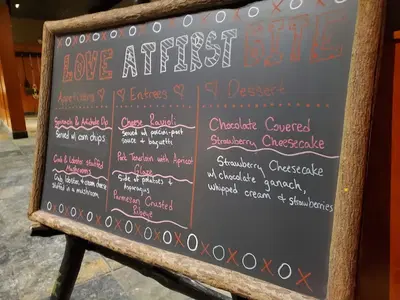 LOVE AT FIRST BITE
Appetizers
Spinach & Artichoke Dip
Served w/ corn chips
Crab & lobster stuffed
Mushrooms
Crab, lobster, + cream cheese
stuffed in a mushroom
Entrees
Cheese Ravioli
Served w/
sauce + baguette
Pork Tenderloin with Apricot
Glaze
Side of potatoes +
asparagus
Parmesan Crusted
Ribeye
Dessert
Chocolate Covered
Strawberry Cheesecake
Strawberry Cheesecake
w/ chocolate ganach,
whipped cream + strawberries